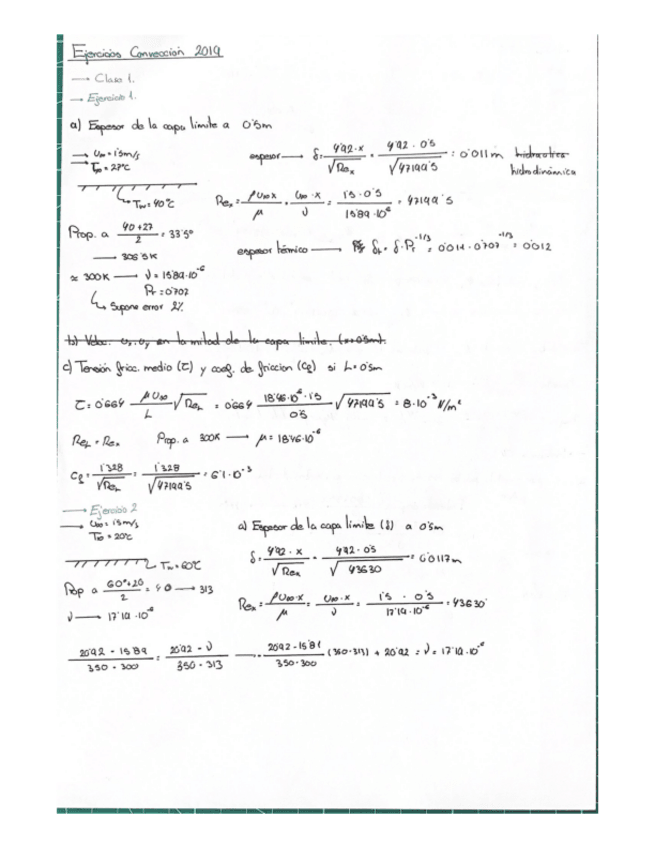 Ejercicios Convección 2019
→ Clase 1.
→ Ejercicio 1.
a) Espesor de la capa límite a 0'5m
→ U∞ = 1'5m/s
→ T∞ = 27ºC
Tw = 40ºC
espesor → δ = 4'92·x / √Rex = 4'92·0'5 / √47199'5 = 0'011m hidraulica hidrodinámica
Rex = ρU∞x / μ = U∞·x / ν = 1'5·0'5 / 15'89·10⁻⁶ = 47199'5
Prop. a 40+27 / 2 = 33'5º
→ 306'5K
≈ 300K → ν = 15'89·10⁻⁶
Pr = 0'707
↳ Supone error 2%
espesor térmico → δt = δ·Pr^-1/3 = 0'011·0'707^-1/3 = 0'012
b) Veloc. en la mitad de la capa límite. (x=0'5m).
c) Tensión fricc. medio (τ) y coef. de fricción (Cf) si L=0'5m
τ = 0'664 μU∞ / L √ReL = 0'664 18'46·10⁻⁶·1'5 / 0'5 √47199'5 = 8·10⁻³ N/m²
ReL = Rex Prop. a 300K → μ = 18'46·10⁻⁶
Cf = 1'328 / √ReL = 1'328 / √47199'5 = 6'1·10⁻³
→ Ejercicio 2
→ U∞ = 1'5m/s
T∞ = 20ºC
Tw = 60ºC
a) Espesor de la capa límite (δ) a 0'5m
δ = 4'92·x / √Rex = 4'92·0'5 / √43630 = 0'0117m
Prop a 60º+20 / 2 = 40 → 313
ν → 17'19·10⁻⁶
Rex = ρU∞·x / μ = U∞·x / ν = 1'5·0'5 / 17'19·10⁻⁶ = 43630
20'92 - 15'89 / 350 - 300 = 20'92 - ν / 350 - 313 → - 20'92-15'89 / 350-300 (350-313) + 20'92 = ν = 17'19·10⁻⁶